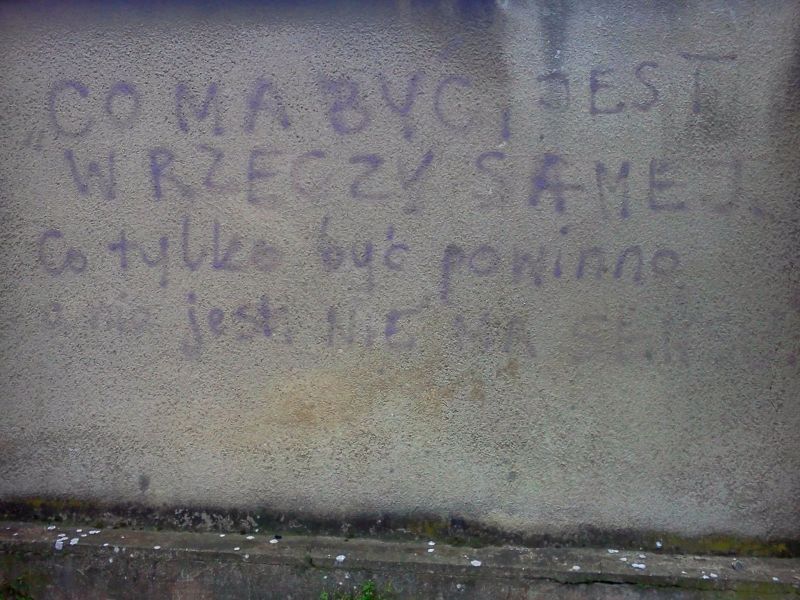 „CO MA BYĆ, JEST
W RZECZY SAMEJ.
Co tylko być powinno,
a nie jest. NIE MA SENSU